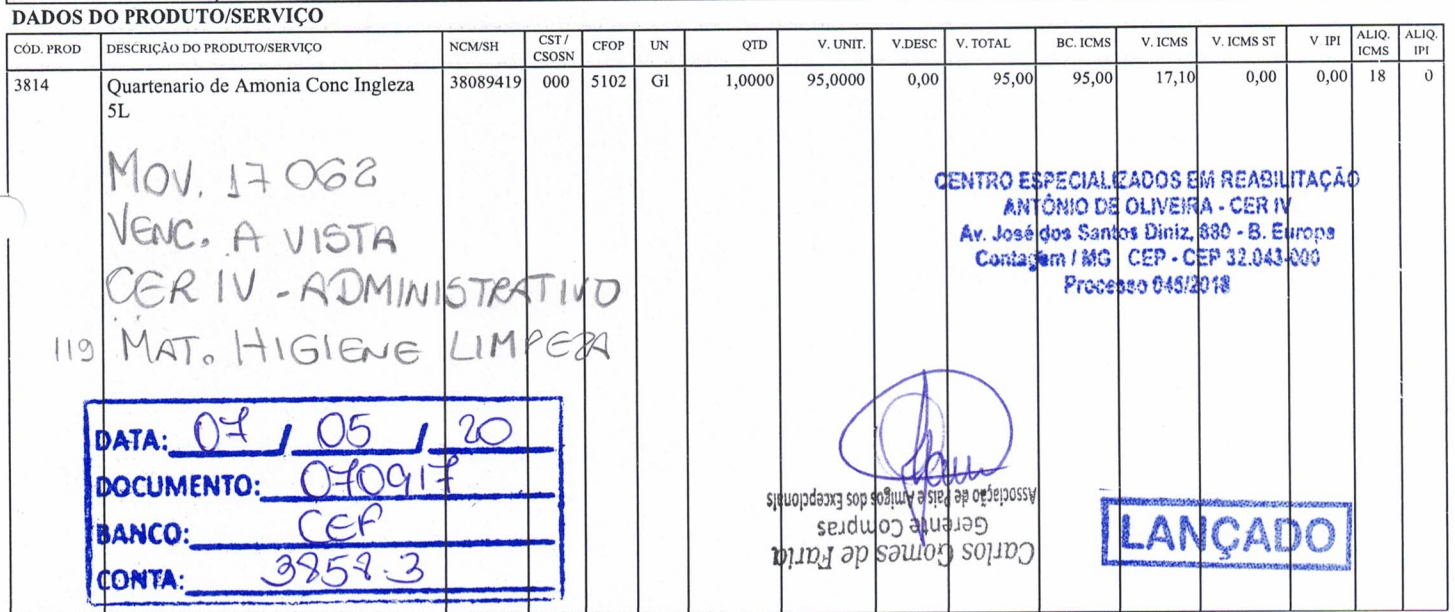 DADOS DO PRODUTO/SERVIÇO
CÓD. PROD DESCRIÇÃO DO PRODUTO/SERVIÇO NCM/SH CST / CSOSN CFOP UN QTD V. UNIT. V.DESC V. TOTAL BC. ICMS V. ICMS V. ICMS ST V IPI ALIQ. ICMS ALIQ. IPI
3814 Quartenario de Amonia Conc Ingleza 38089419 000 5102 Gl 1,0000 95,0000 0,00 95,00 95,00 17,10 0,00 0,00 18 0
5L
MOV. 17062
VENC. A VISTA
CER IV - ADMINISTRATIVO
119 MAT. HIGIENE LIMPEZA
CENTRO ESPECIALIZADOS EM REABILITAÇÃO
ANTÔNIO DE OLIVEIRA - CER IV
Av. José dos Santos Diniz, 880 - B. Europa
Contagem / MG CEP - CEP 32.043-000
Processo 045/2018
DATA: 07 / 05 / 20
DOCUMENTO: 070917
BANCO: CEF
CONTA: 3858-3
Carlos Gomes de Faria
Gerente Compras
Associação de Pais e Amigos dos Excepcionais
LANÇADO